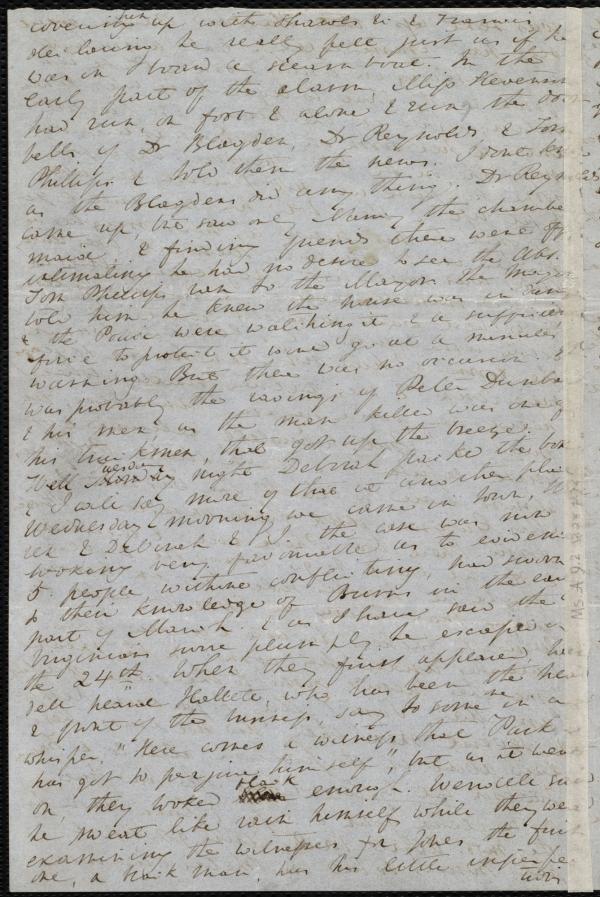 covering up with shawls &c & Francis
her
declaring he really felt just as if he
was on board a steam boat. In the
early part of the alarm, Miss Stevenson
had run, on foot & alone & rung the door
bells of Dr Blagden, Dr Reynolds, & Tom
Phillips & told them the news. I dont kn
as the Blagdens did any thing. Dr Reyn
came up, but saw only Nancy the chamber
maid & finding friends there were off
intimating he had no desire to see the Abs.
Tom Phillips ran to the Mayor, the Mayor
told him he knew the house was in dan
& the Police were watching it & a sufficient
force to protect it would go at a minutes
warning. But there was no occasion.
was probably the ravings of Peter Dunbar
& his men as the man killed was one of
his truckmen, that got up the breeze.
Well Tuesday night Deborah packed the box
& I will say more of that in another place
Wednesday morning we came in town,
& Deborah & I, the case was
looking very favourable as to evidence
5 people, without conflicting, had sworn
to their knowledge of Burns in the ear
part of March & as I have said the
Virginians swore plumply he escaped on
the 24th. When they first appeared,
heard Hallett, who has been the head
& front of the business, say to some one in a
whisper, "Here comes a witness that Park
has got to perjure himself", but as it went
on, they looked black enough. Wendell said
he sweat like rain himself while they were
examining the witnesses for Jones the first
one, a black man, has his little imperfec
tions
Ms. A. 9.2